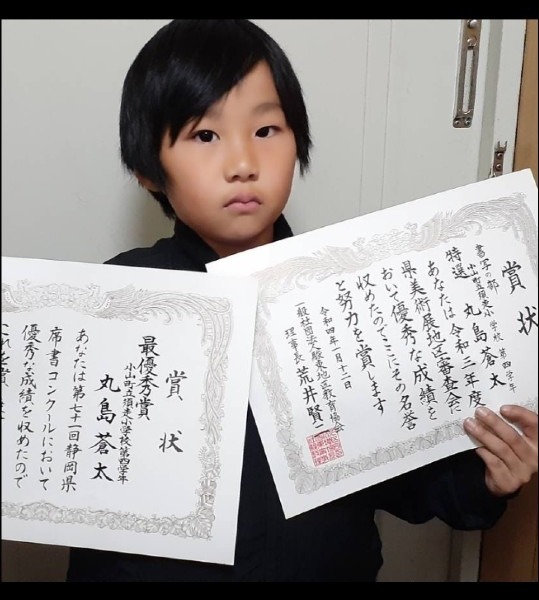 賞状
最優秀賞
小山町立須走小学校 第四学年
丸島蒼太
あなたは第七十一回静岡県
席書コンクールにおいて
優秀な成績を収めたので
賞状
書写の部
小山町立須走小学校 第四学年
特選 丸島蒼太
あなたは令和三年度
県美術展地区審査会に
おいて優秀な成績を
収めたのでここにその名誉
と努力を賞します
令和四年一月十二日
一般社団法人駿東地区教育協会
理事長 荒井賢一